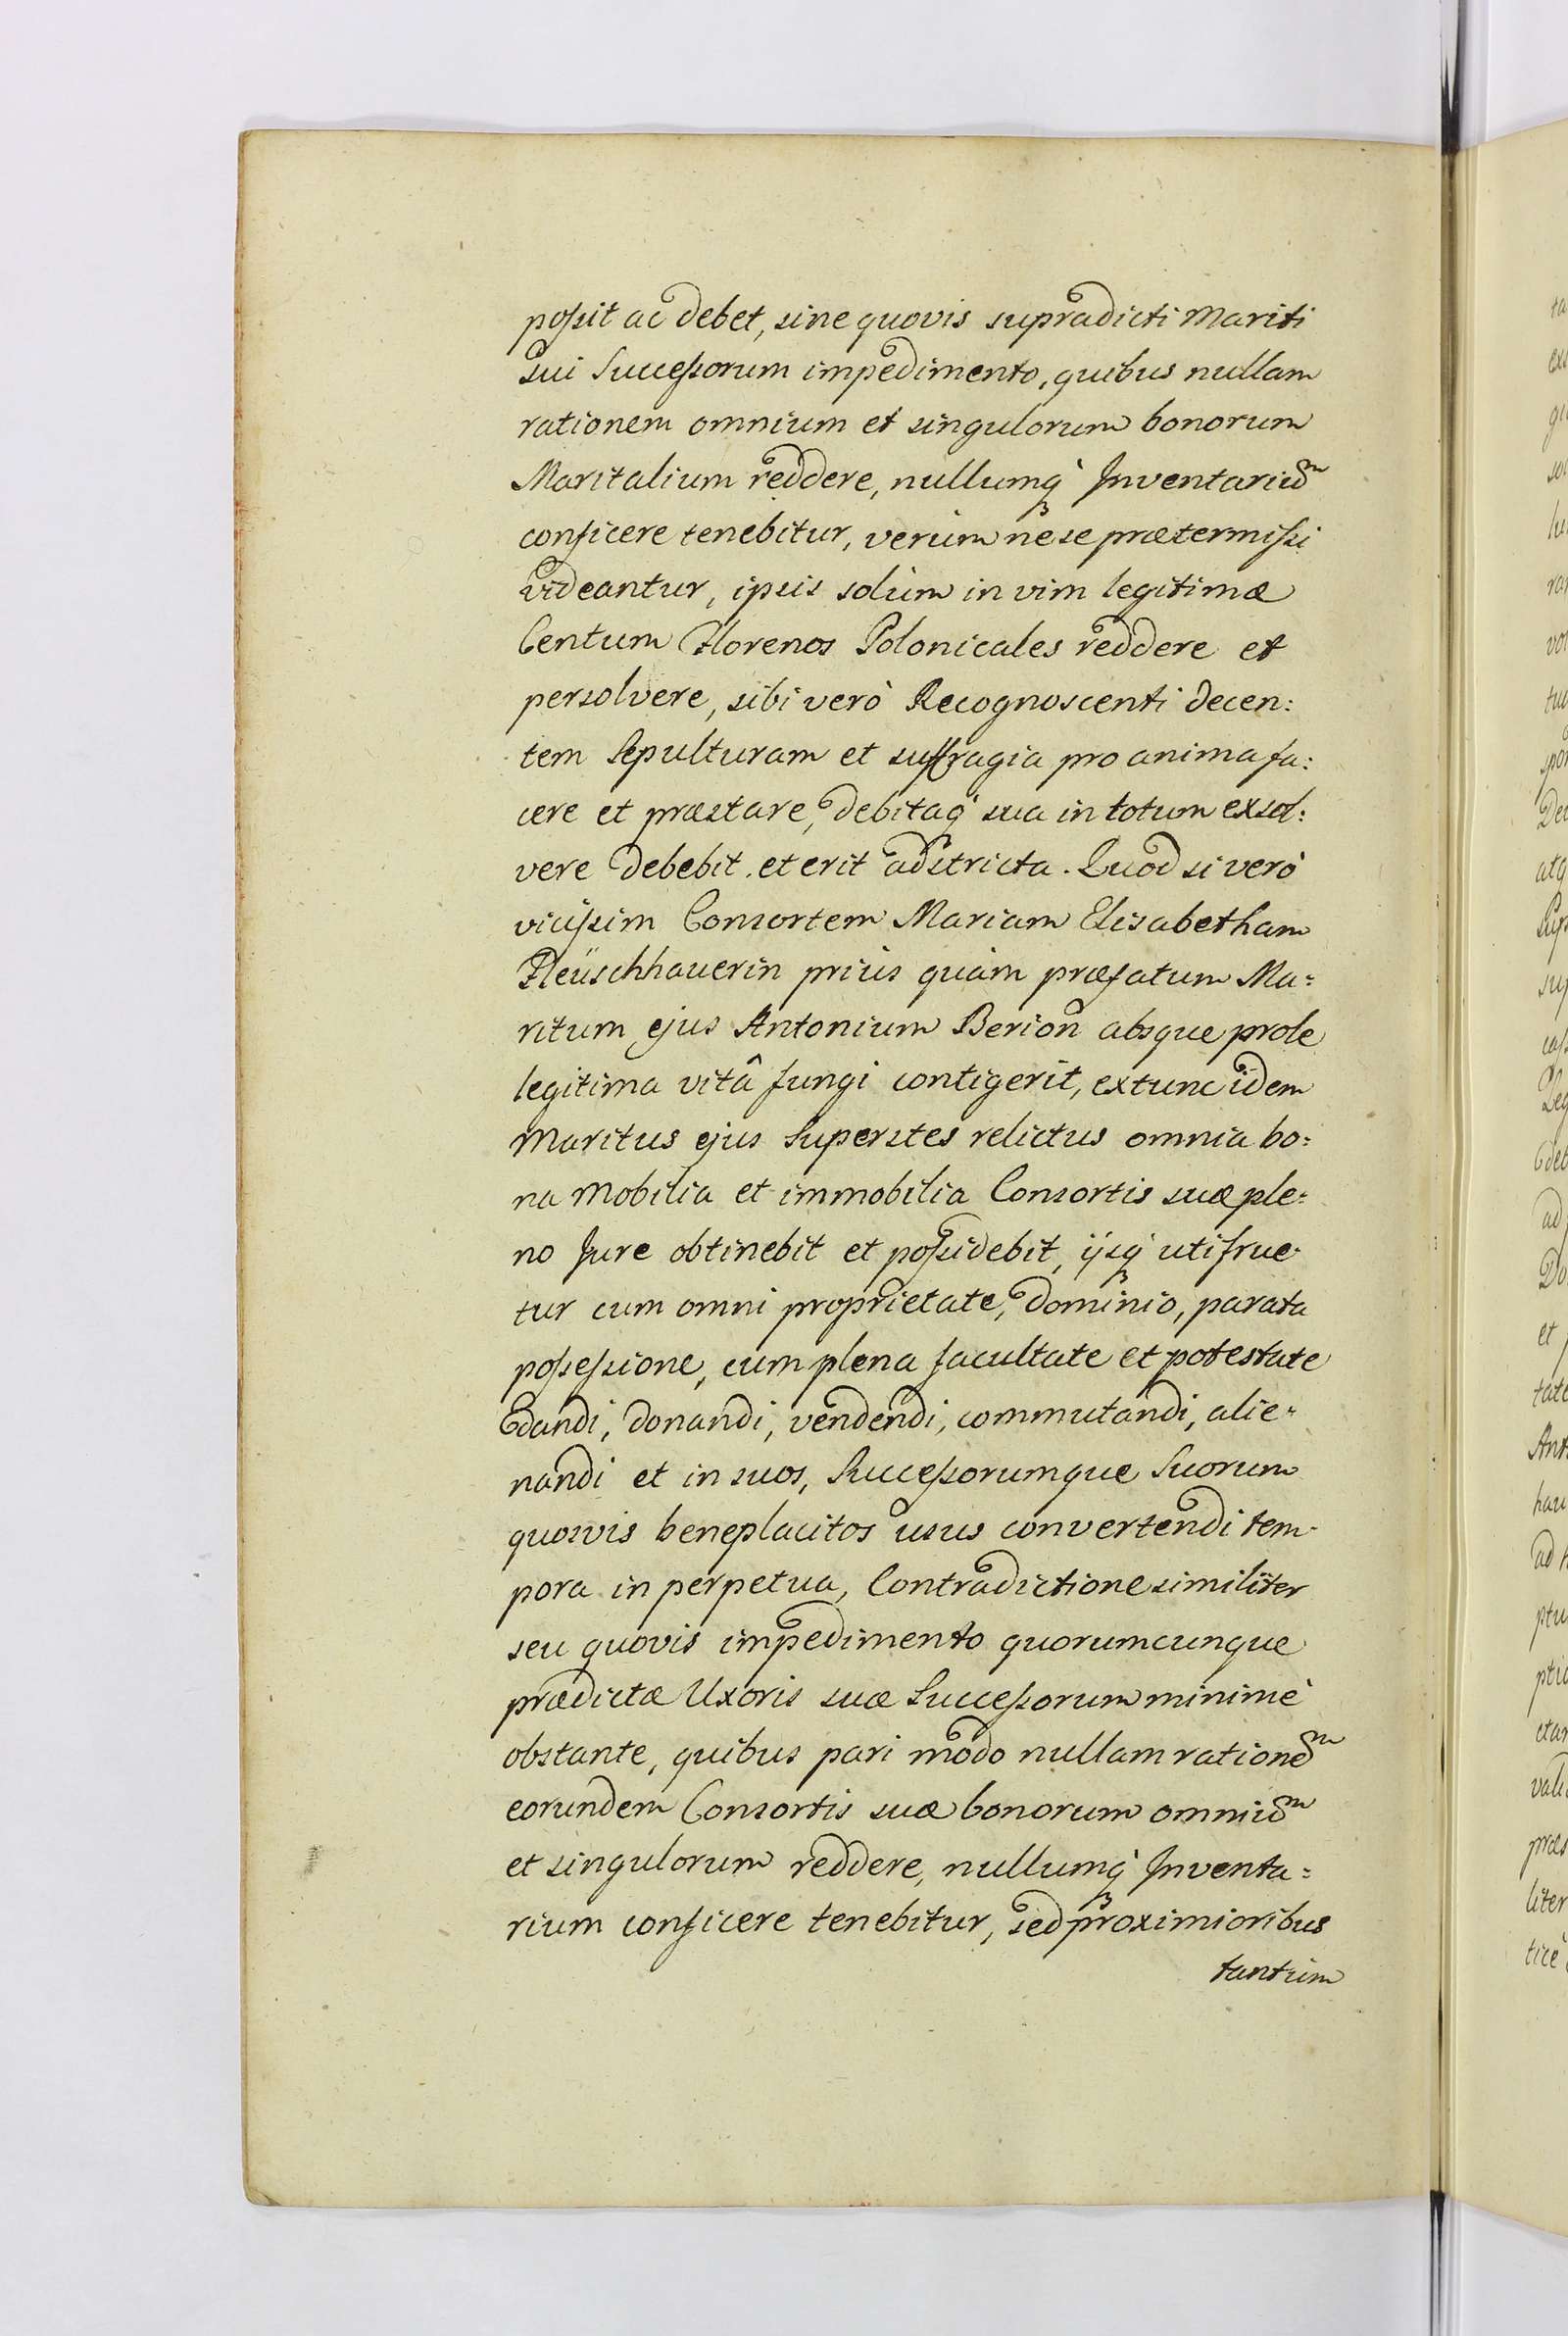 possit ac debet, sine quovis supradicti Mariti
sui Successorum impedimento, quibus nullam
rationem omnium et singulorum bonorum
Maritalium reddere, nullumq́ Inventariũm
conficere tenebitur, verùm ne se prætermissi
videantur, ipsis solùm in vim legitimæ
Centum Florenos Polonicales reddere et
persolvere, sibi verò Recognoscenti decen:
tem Sepulturam et suffragia pro anima fa:
cere et præstare, debitaq́ sua in totum exsol:
vere debebit et erit adstricta. Quod si verò
vicissim Consortem Mariam Elisabetham
Fleüschhauerin priùs quàm præfatum Ma:
ritum ejus Antonium Berion absque prole
legitima vitâ fungi contigerit, extunc idem
Maritus ejus Superstes relictus omnia bo:
na Mobilia et immobilia Consortis suæ ple:
no Jure obtinebit et possidebit, ijsq́ utifrue:
tur cum omni proprietate, dominio, parata
possessione, cum plena facultate et potestate
dandi, donandi, vendendi, commutandi, alie:
nandi et in suos, Successorumque Suorum
quosvis beneplacitos usus convertendi tem:
pora in perpetua, Contradictione similiter
seu quovis impedimento quorumcunque
prædictæ Uxoris suæ Successorum minimè
obstante, quibus pari modo nullam rationem
eorundem Consortis suæ bonorum omnium
et singulorum reddere, nullumq́ Inventa:
rium conficere tenebitur, sed proximioribus
tantùm